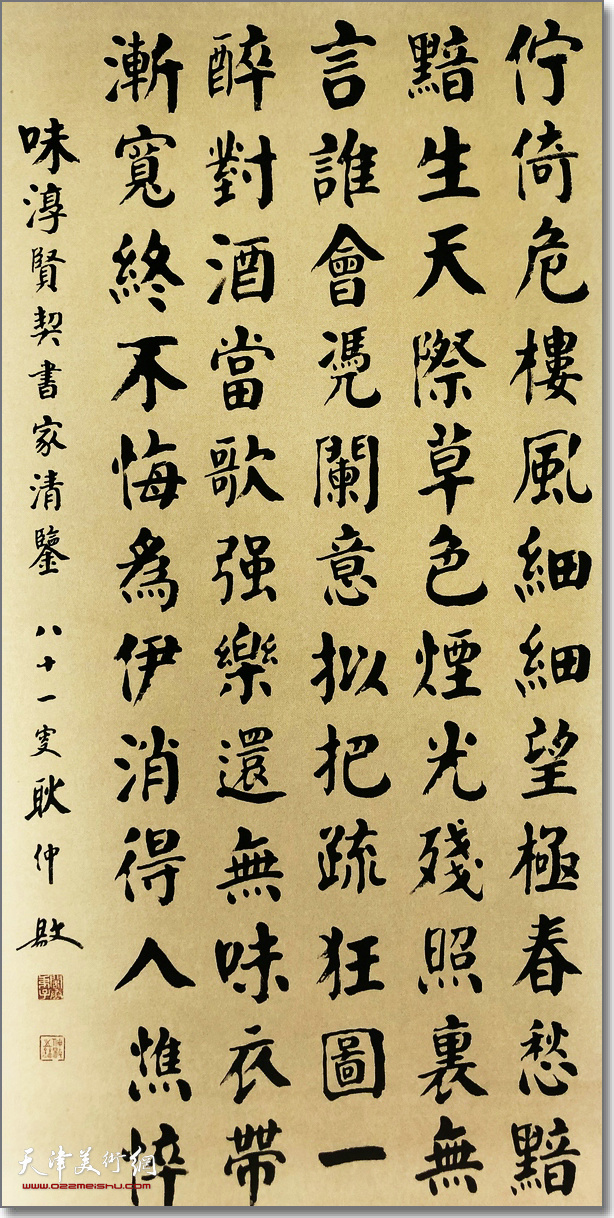 佇倚危樓風細細望極春愁黯
黯生天際草色煙光殘照裏無
言誰會凴闌意拟把疏狂圖一
醉對酒當歌强樂還無味衣帶
漸寬終不悔爲伊消得人憔悴
味淳賢契書家清鑒 八十一叟耿仲敭
天津美術網
www.022meishu.com